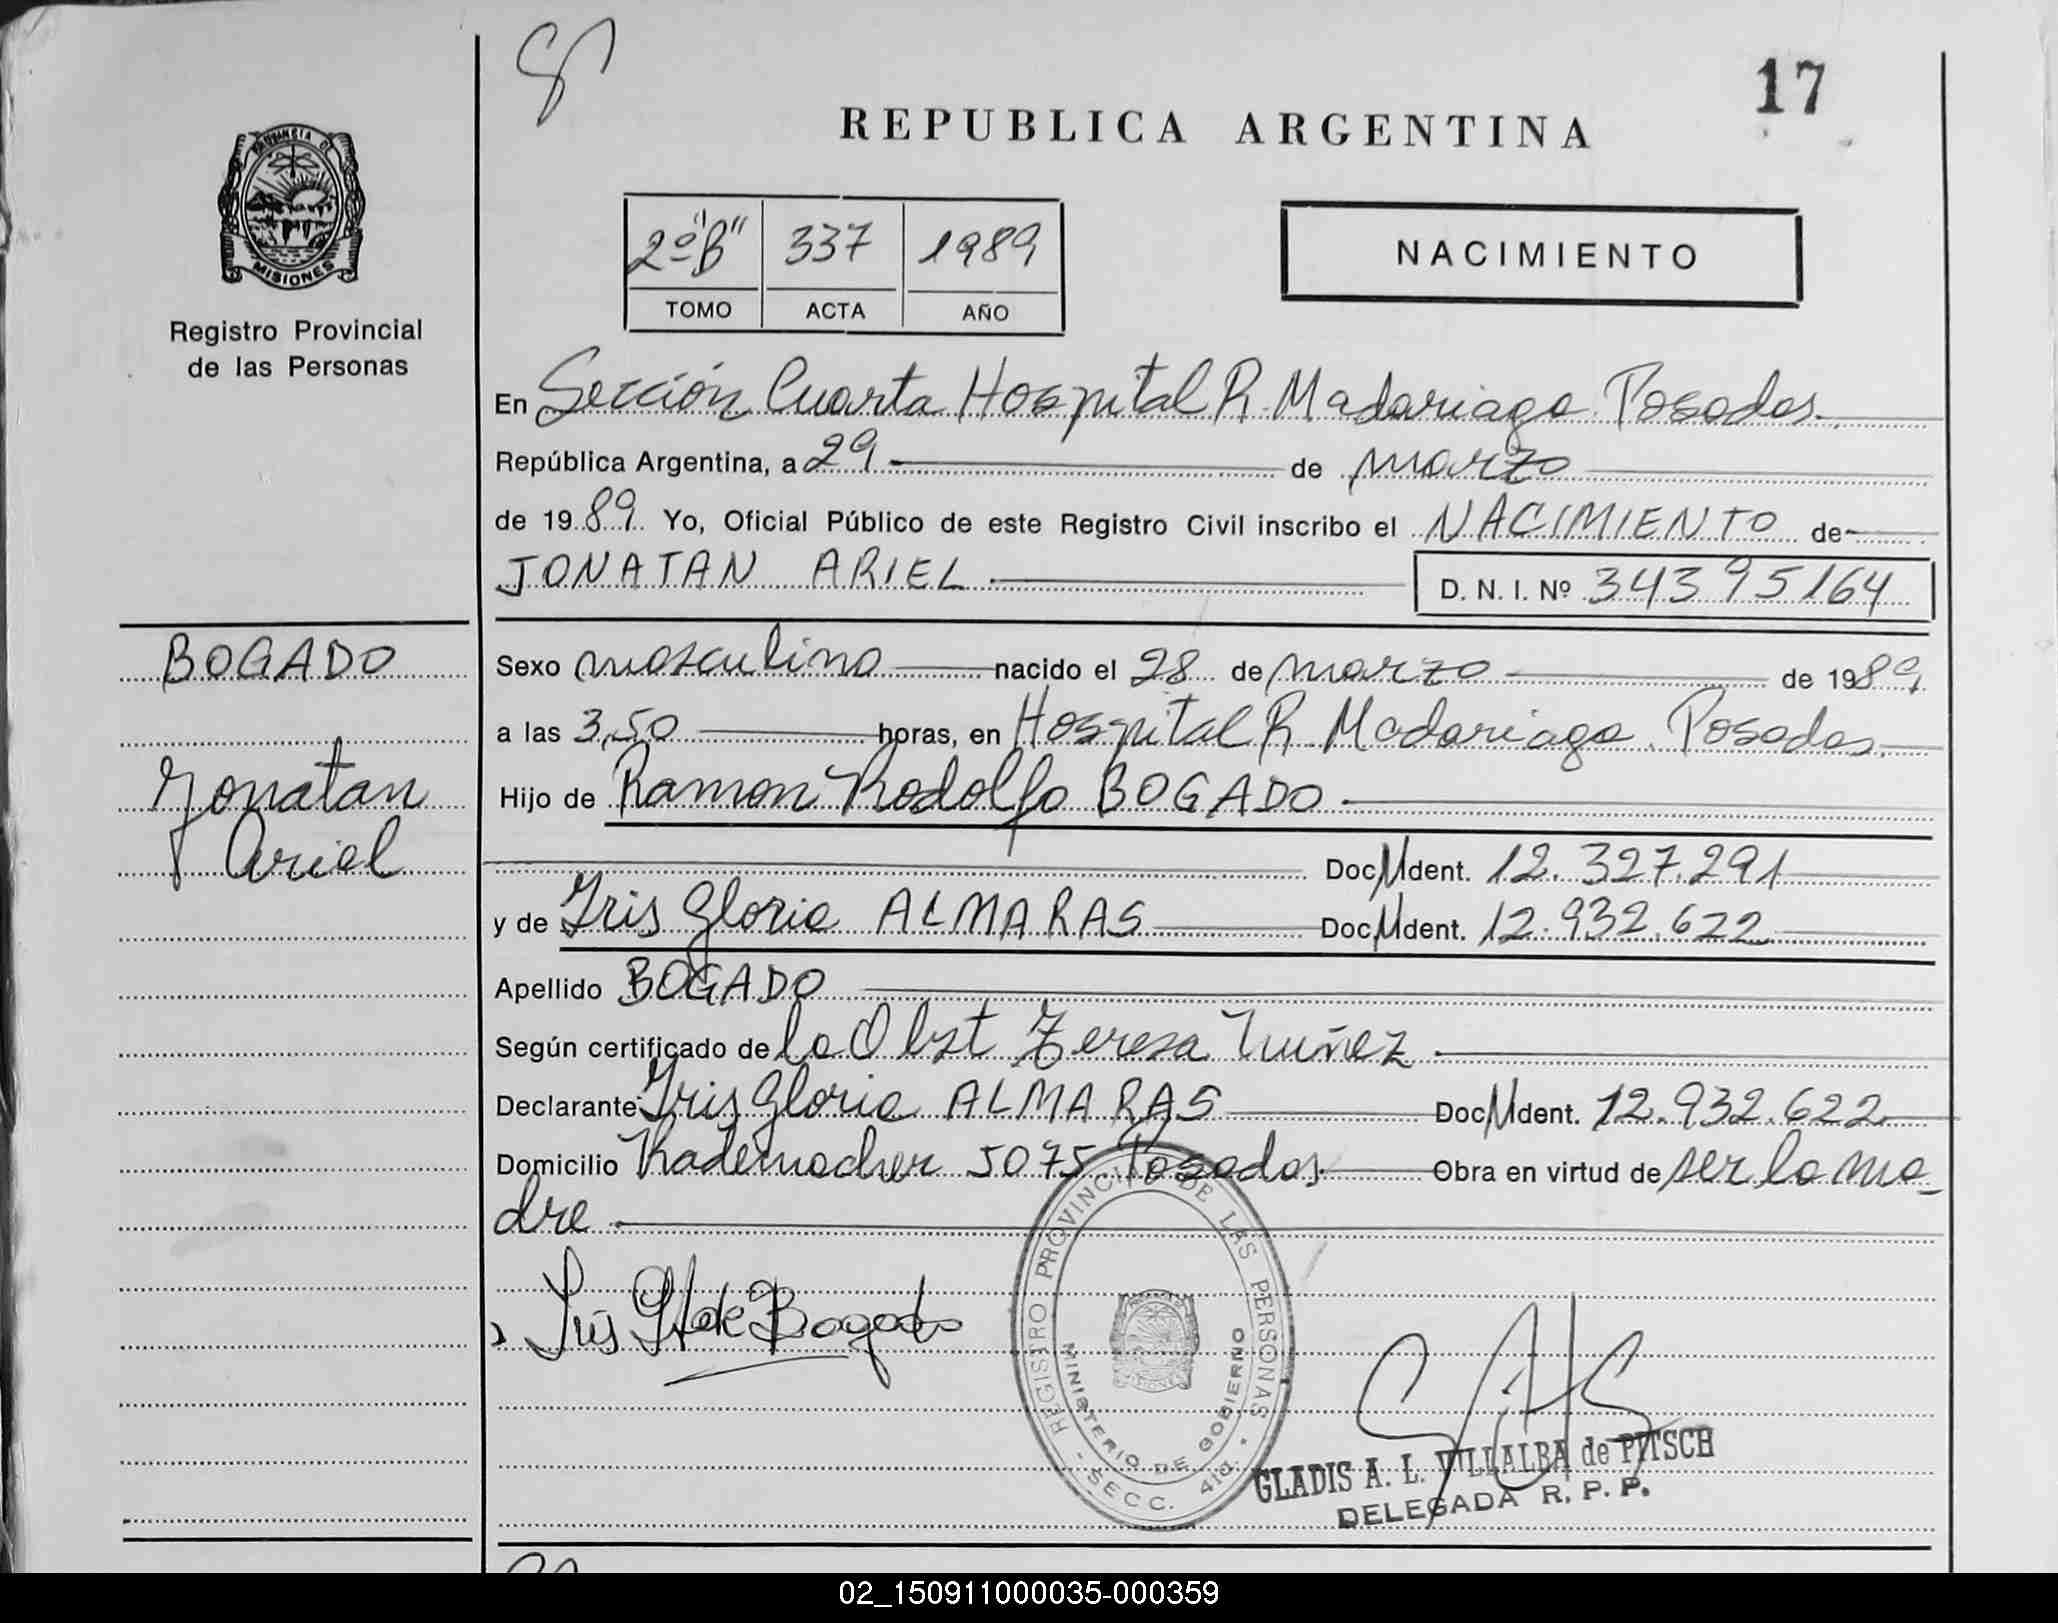 17
REPUBLICA ARGENTINA
PROVINCIA DE
MISIONES
Registro Provincial
de las Personas
2º "B" 337 1989
TOMO ACTA AÑO
NACIMIENTO
En Sección Cuarta Hospital R. Madariaga. Posadas.
República Argentina, a 29 de marzo
de 1989. Yo, Oficial Público de este Registro Civil inscribo el NACIMIENTO de
JONATAN ARIEL D. N. I. Nº 34395164
BOGADO
Jonatan
Ariel
Sexo masculino nacido el 28 de marzo de 1989
a las 3,50 horas, en Hospital R. Madariaga. Posadas.
Hijo de Ramon Rodolfo BOGADO
Doc. Ident. 12.327.291
y de Iris Gloria ALMARAS Doc. Ident. 12.932.622
Apellido BOGADO
Según certificado de la Obst Teresa Nuñez
Declarante Iris Gloria ALMARAS Doc. Ident. 12.932.622
Domicilio Rademacher 5075 Posadas Obra en virtud de ser la ma-
dre
Iris de Bogado
REGISTRO PROVINCIAL DE LAS PERSONAS
MINISTERIO DE GOBIERNO
- SECC. 4ta. -
GLADIS A. L. VILLALBA de PITSCH
DELEGADA R. P. P.
02_150911000035-000359